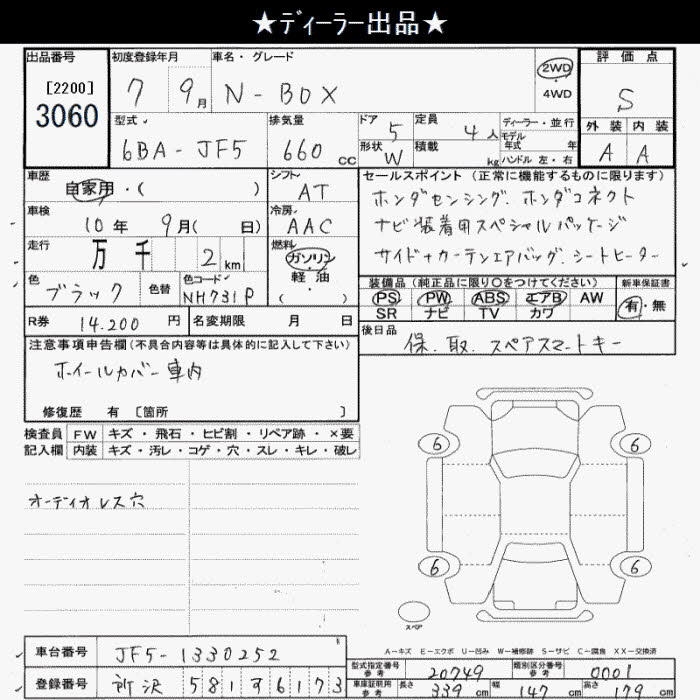 ★ディーラー出品★
出品番号 初度登録年月 車名・グレード 評価点
[2200] 7 9月 N-BOX 2WD S
3060 4WD
型式 排気量 ドア 5 定員 4人 ディーラー・並行 外装 内装
モデル
年式 年
6BA-JF5 660cc 形状 W 積載 kg ハンドル 左・右 A A
車歴 シフト セールスポイント (正常に機能するものに限ります)
自家用・( ) AT ホンダセンシング. ホンダコネクト
車検 冷房
10年 9月( 日) AAC ナビ装着用スペシャルパッケージ
走行 燃料
万 千 2km ガソリン サイド+カーテンエアバッグ. シートヒーター
軽・油
色 色替 色コード 装備品 (純正品に限り○をつけてください) 新車保証書
ブラック NH731P ( ) PS PW ABS エアB AW 有・無
SR ナビ TV カワ
R券 14.200円 名変期限 月 日 後日品
保. 取. スペアスマートキー
注意事項申告欄(不具合内容等は具体的に記入して下さい)
ホイールカバー車内
修復歴 有 [箇所 ]
検査員 FW キズ・飛石・ヒビ割・リペア跡・×要
記入欄 内装 キズ・汚レ・コゲ・穴・スレ・キレ・破レ
6 6
オーディオレス穴
6 6
スペア
A-キズ E-エクボ U-凹み W-補修跡 S-サビ C-腐食 XX-交換済
車台番号 JF5-1330252
型式指定番号 参考 20749 類別区分番号 参考 0001
登録番号 所沢 581す6173
車庫証明用 参考 長さ 339cm 幅 147cm 高さ 179cm